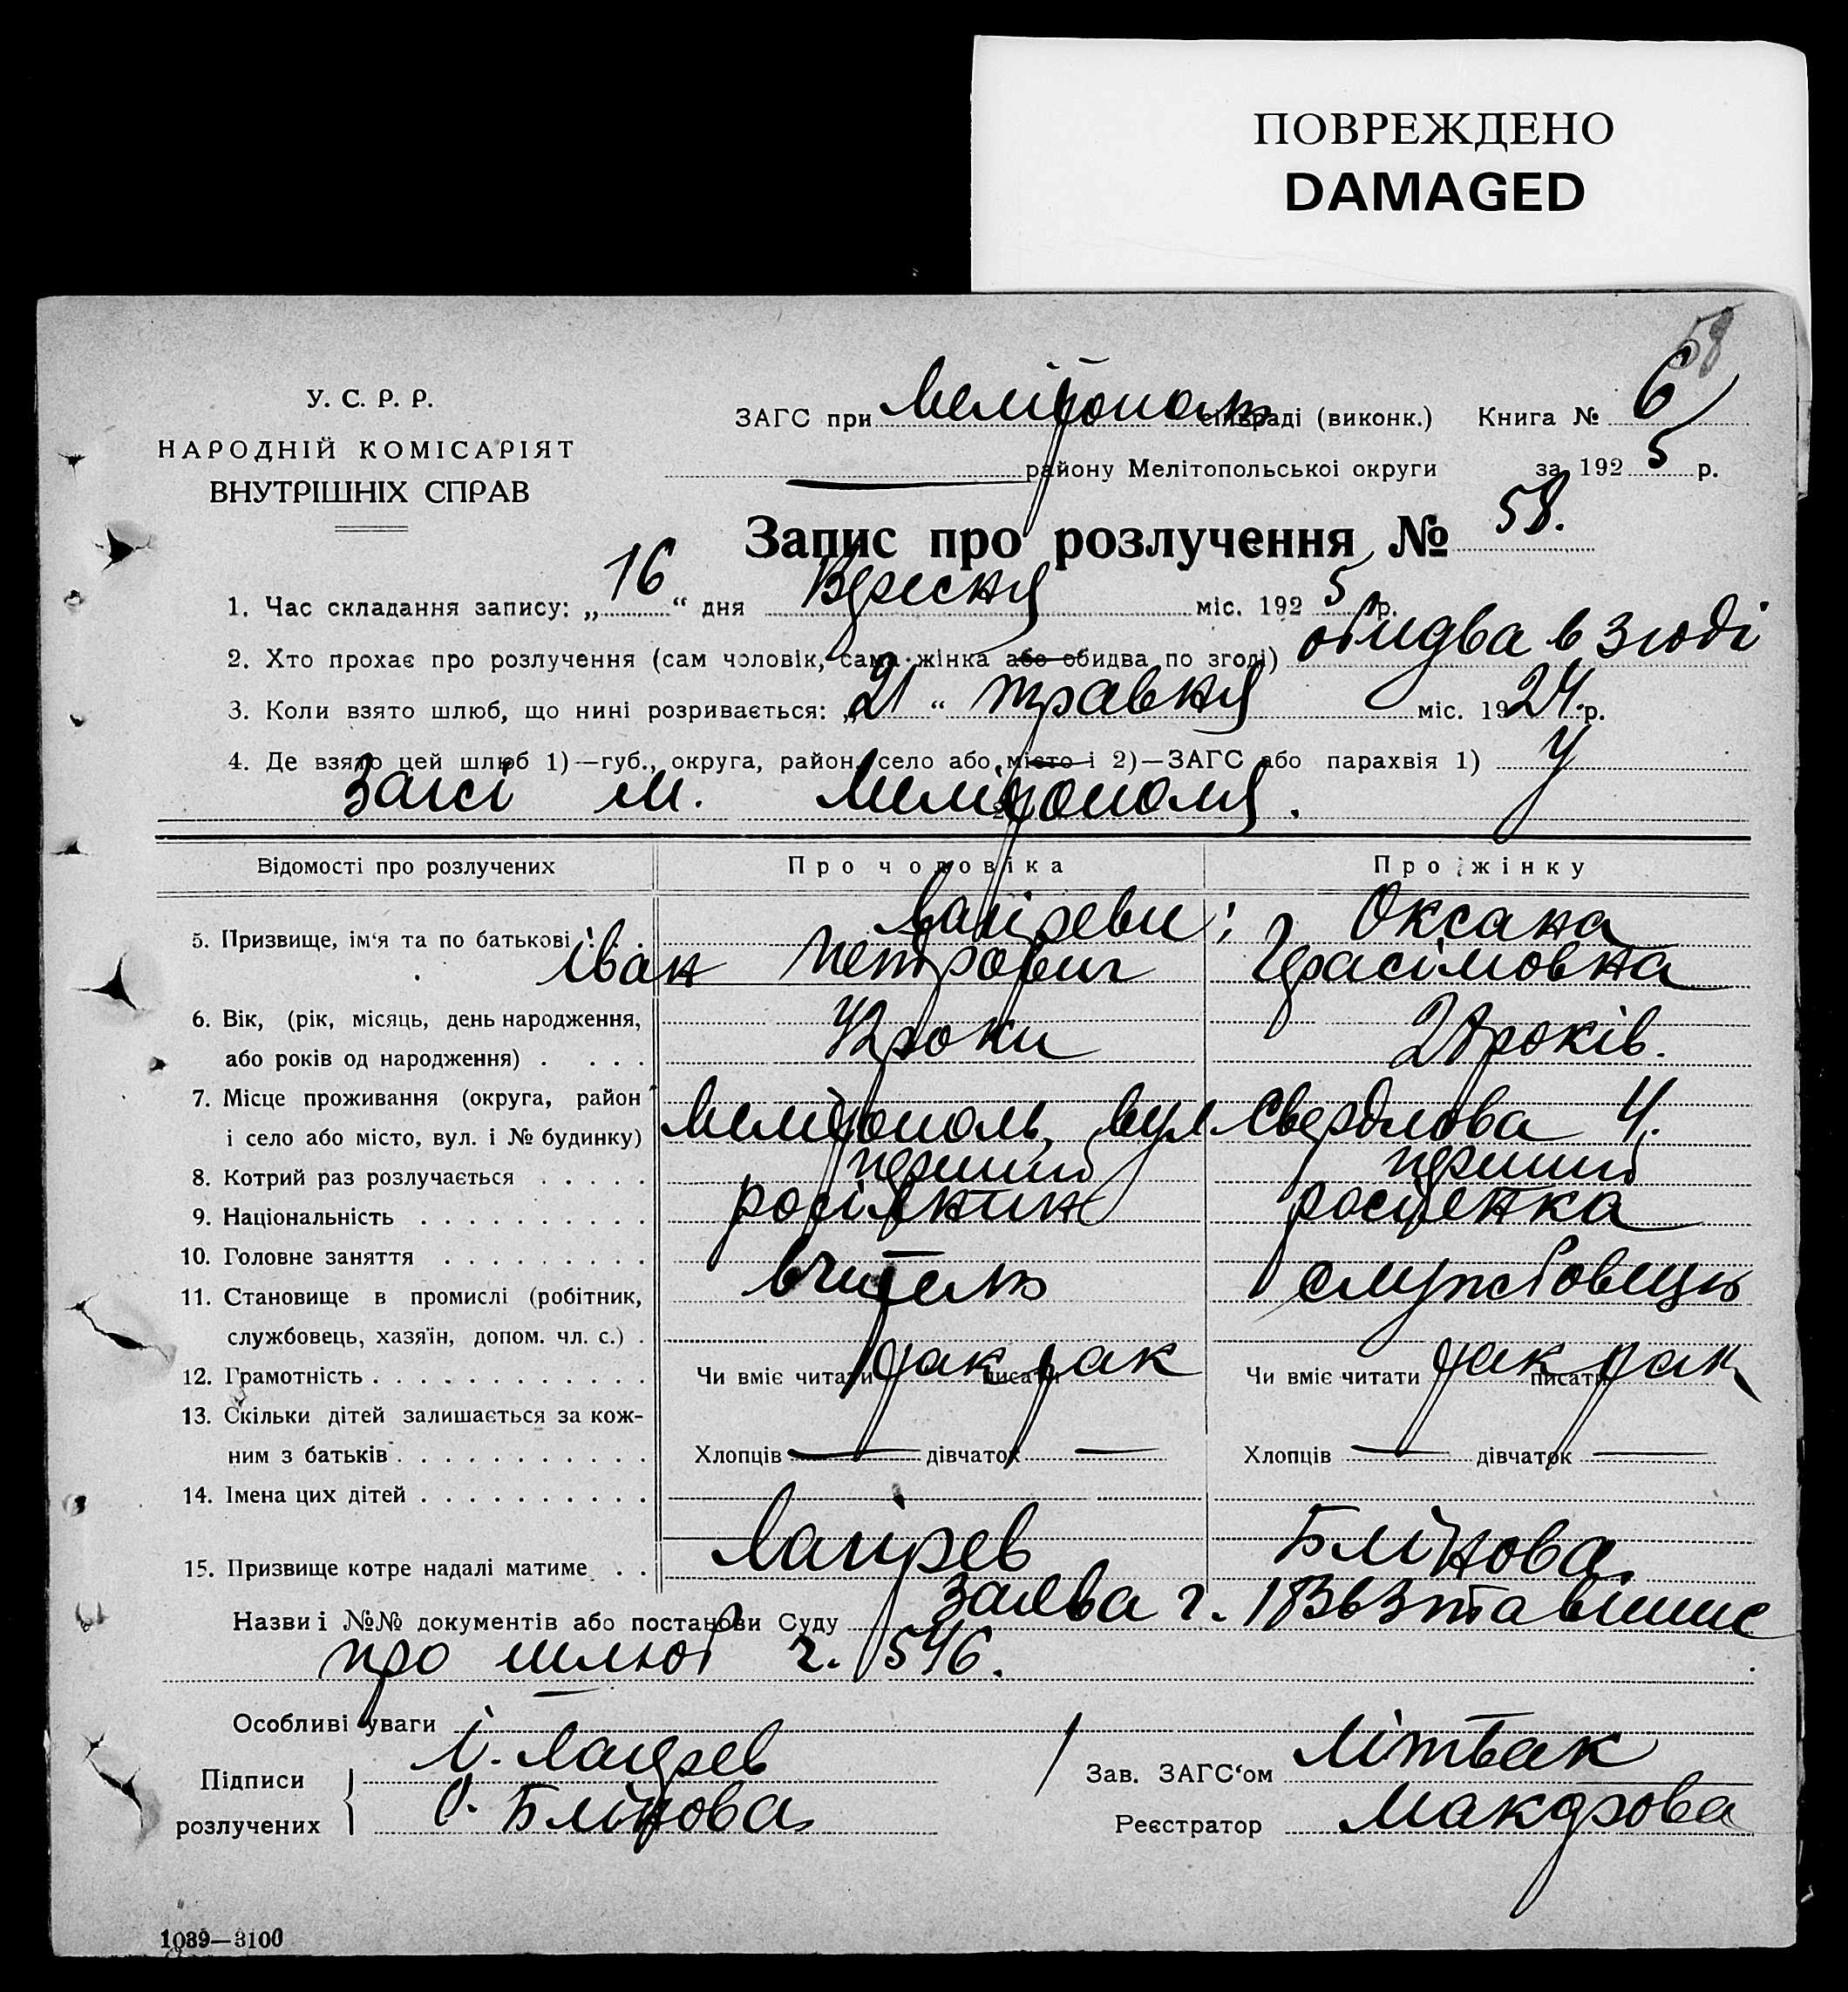 ПОВРЕЖДЕНО
DAMAGED
58
У. С. Р. Р.
НАРОДНІЙ КОМІСАРІЯТ
ВНУТРІШНІХ СПРАВ
ЗАГС при Мелітополь сільраді (виконк.) Книга № 6
району Мелітопольської округи за 1925 р.
Запис про розлучення № 58.
1. Час складання запису: „16“ дня Вересня міс. 1925 р.
2. Хто прохає про розлучення (сам чоловік, сама жінка або обидва по згоді) обидва в згоді
3. Коли взято шлюб, що нині розривається: „21“ травня міс. 1924 р.
4. Де взято цей шлюб 1)—губ., округа, район, село або місто і 2)—ЗАГС або парахвія 1) у
Загсі м. Мелітополя.
Відомості про розлучених Про чоловіка Про жінку
5. Призвище, ім‘я та по батькові Оксана
Іван Петрович Герасімовна
6. Вік, (рік, місяць, день народження,
або років од народження) 42 роки років.
7. Місце проживання (округа, район
і село або місто, вул. і № будинку) Мелітополь, вул Свердлова 4.
8. Котрий раз розлучається перший перший
9. Національність росіянин росіенка
10. Головне заняття
11. Становище в промислі (робітник, вчитель службовець
службовець, хазяїн, допом. чл. с.)
12. Грамотність Чи вміє читати так писати так Чи вміє читати так писати так
13. Скільки дітей залишається за кож-
ним з батьків Хлопців — дівчаток — Хлопців — дівчаток —
14. Імена цих дітей
15. Призвище котре надалі матиме Блінова
Назви і №№ документів або постанови Суду заява ч. та виписс
про шлюб ч. 546.
Особливі уваги
Підписи І. Зав. ЗАГС‘ом Літвак
розлучених О. Блінова Реєстратор Макарова
1039—3100